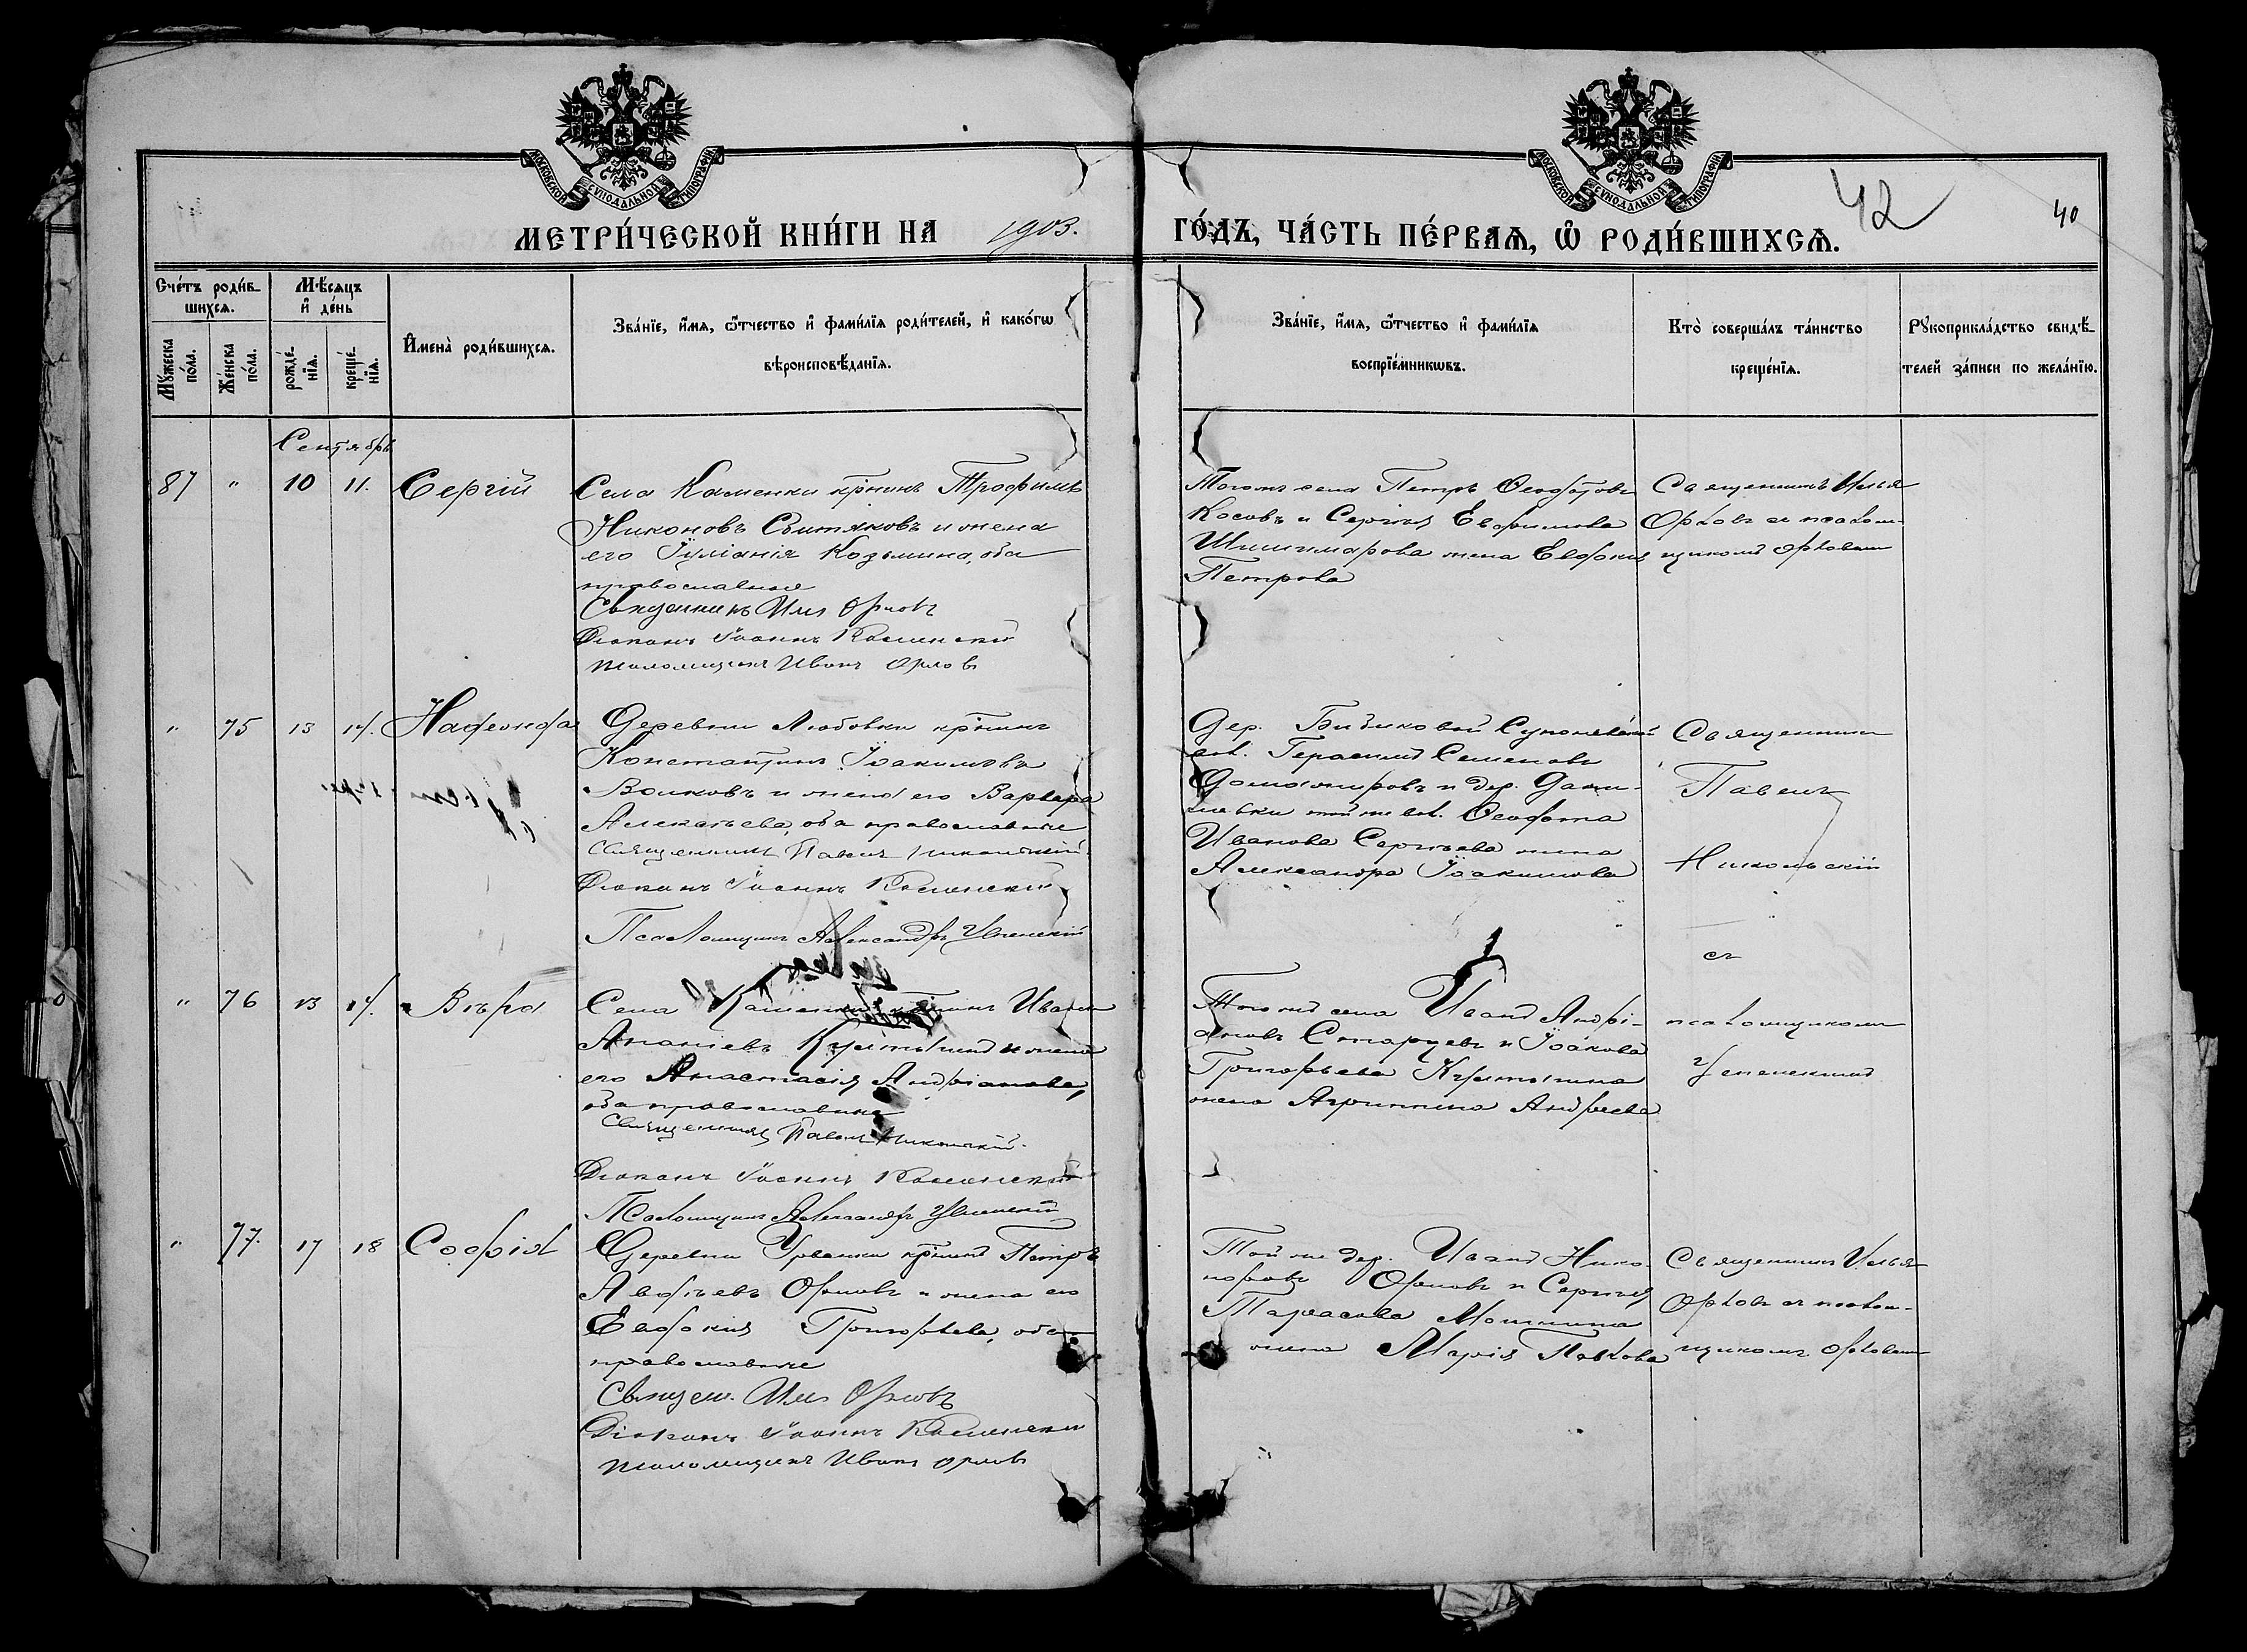 МОСКОВСКОЙ СѴНОДАЛЬНОЙ ТИПОГРАФІИ
МОСКОВСКОЙ СѴНОДАЛЬНОЙ ТИПОГРАФІИ
42
40
МЕТРИ́ЧЕСКОЙ КНИ́ГИ НА 1903. ГО́ДЪ, ЧА́СТЬ ПЕ́РВАѦ, Ѽ РОДИ́ВШИХСѦ.
Сче́тъ роди́в-
шихсѧ.
Мѣ́сѧцъ
и҆ де́нь
Мꙋ́жеска
по́ла.
Же́нска
по́ла.
рожде́-
нїѧ.
креще́-
нїѧ.
И҆мена̀ роди́вшихсѧ.
Зва́нїе, и҆́мѧ, ѻ҆́тчество и҆ фами́лїѧ роди́телей, и҆ како́гѡ
вѣроисповѣ́данїѧ.
Зва́нїе, и҆́мѧ, ѻ҆́тчество и҆ фами́лїѧ
воспрїе́мникѡвъ.
Кто̀ соверша́лъ та́инство
креще́нїѧ.
Рꙋкоприкла́дство свидѣ́-
телей за́писи по жела́нїю.
Сентябрь
87 " 10 11. Сергій
Села Каменки кр-нинъ Трофимъ
Никоновъ Сытяковъ и жена
его Іуліанія Козьмина, оба
православные
Священникъ Илія Орловъ
Діаконъ Іоаннъ Каменскій
псаломщикъ Иванъ Орловъ
Того же села Петръ Ѳеодотовъ
Косовъ и Сергія Евфимова
Шишмарова жена Евдокія
Петрова
Священникъ Илья
Орловъ съ псалом-
щикомъ Орловым
" 75 13 14.
Деревни Любовки кр-нинъ
Константинъ Іоакимовъ
Волковъ и жена его Варвара
Алексѣева, оба православные
Священникъ Павелъ Никольскій
Діаконъ Іоаннъ Каменскій
Псаломщикъ Александръ Успенскій
Дер. Бибиковой
вол. Герасимъ Семеновъ
Доможировъ и дер. Дани-
ловки той же вол. Ѳеодота
Иванова Сергѣева жена
Александра Іоакимова
Священникъ
Павелъ
Никольскій
съ
псаломщикомъ
Успенскимъ
" 76 13 14. Вѣра
Села Каменки кр-нинъ Иванъ
Ананіевъ Курятынъ и жена
его Анастасія Андріанова,
оба православные
Священникъ Павелъ Никольскій
Діаконъ Іоаннъ Каменскій
Псаломщикъ Александръ Успенскій
Того же села Иванъ Андрі-
ановъ Старцевъ и Іоакова
Григорьева
жена Агриппина Андреева
" 77. 17 18 Софія
Деревни Урванки кр-нинъ Петръ
Авдѣевъ Орловъ и жена его
Евдокія Григорьева, оба
православные
Священ. Илія Орловъ
Діаконъ Іоаннъ Каменскій
псаломщикъ Иванъ Орловъ
Той же дер. Иванъ Ника-
норовъ Орловъ и Сергія
Тарасова Мошнина
жена Марія Павлова
Священникъ Илья
Орловъ съ псалом-
щикомъ Орловым